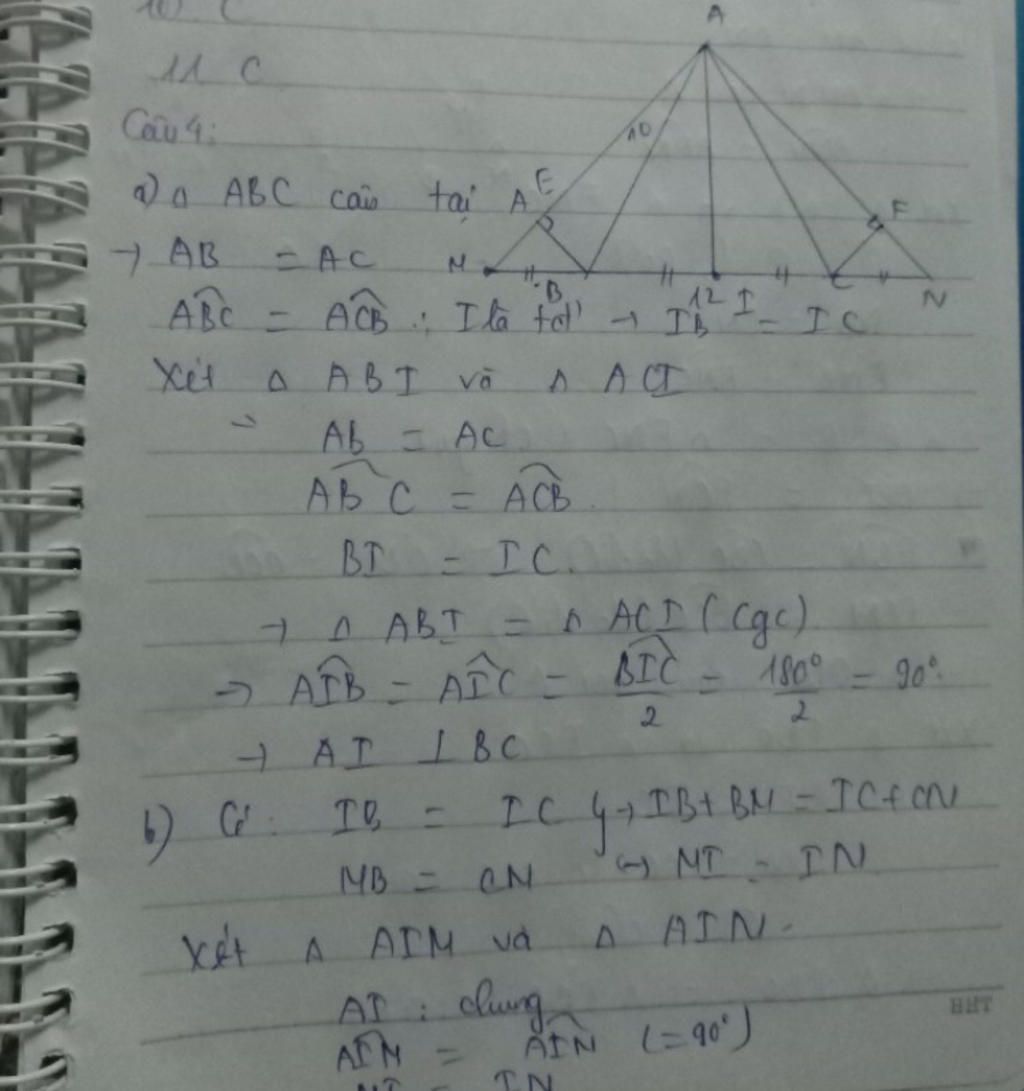 10) C
11 C
Câu 4:
A
10
E
F
M
B
12
I
C
N
a) Δ ABC cân tại A
→ AB = AC
ABC = ACB : I là tđ → IB = IC
Xét Δ ABI và Δ ACI
AB = AC
ABC = ACB.
BI = IC.
→ Δ ABI = Δ ACI (cgc)
→ AIB = AIC = BIC/2 = 180°/2 = 90°.
→ AI ⊥ BC
b) Có: IB = IC } → IB + BM = IC + CN
MB = CN ↔ MI = IN
Xét Δ AIM và Δ AIN.
AI : chung
AIM = AIN (= 90°)
MI = IN
HHT